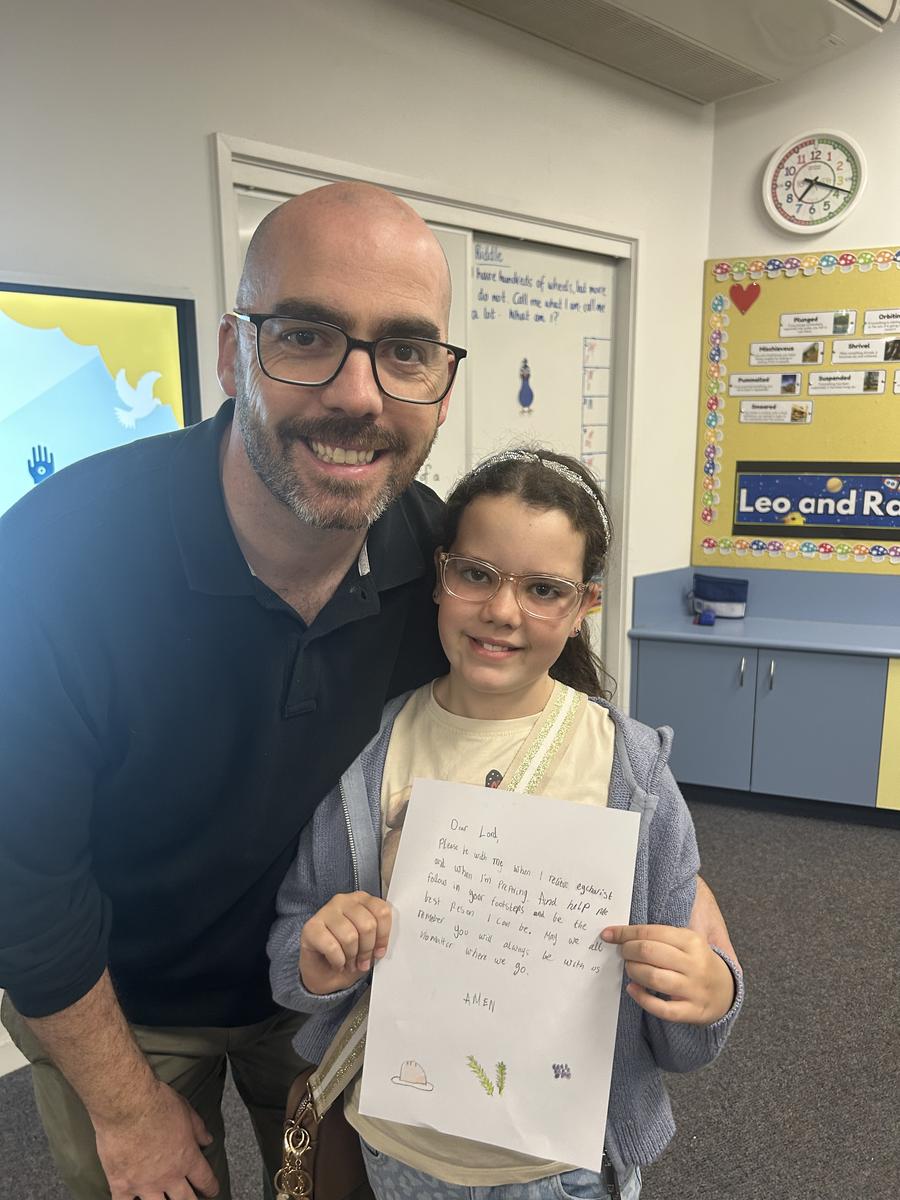 Riddle
I have hundreds of wheels, but move
do not. Call me what I am, call me
a lot. What am I?
12
1
2
3
4
5
6
7
8
9
10
11
Plunged
Orbitin
Mischievous
Shrivel
Pummelled
Suspended
Smeared
Leo and Ra
Dear Lord,
Please be with me when I recieve eycharist
and when I'm Preparing. And help me
follow in your footsteps and be the
best Person I can be. May we all
remember you will always be with us
no mattor where we go.
AMEN